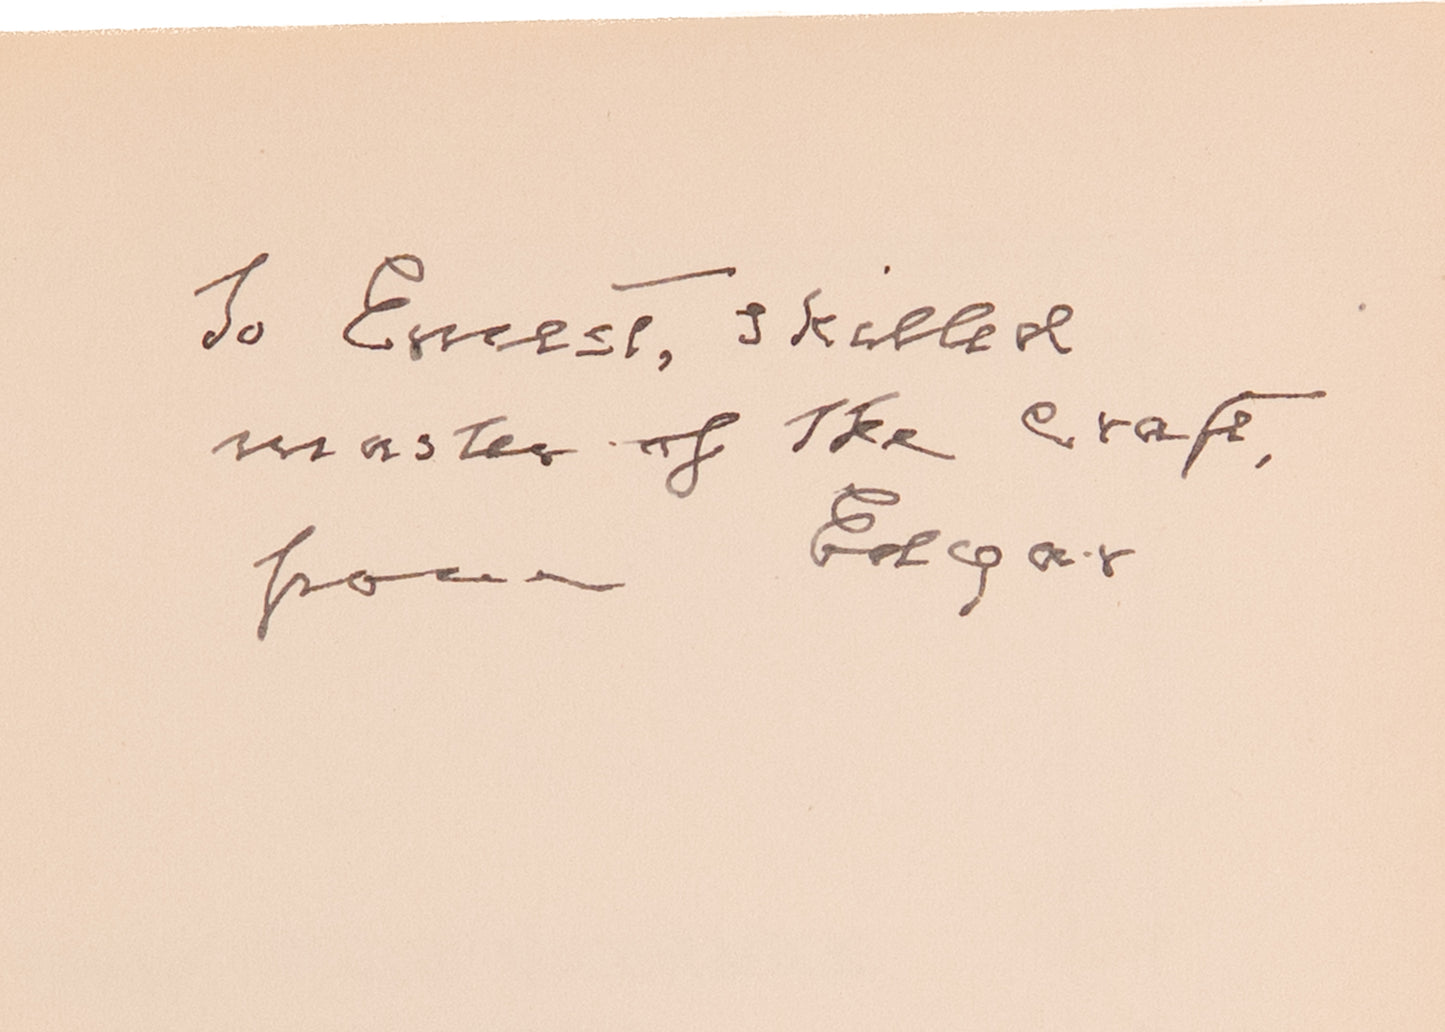 To Ernest, skilled
master of the craft,
from Edgar